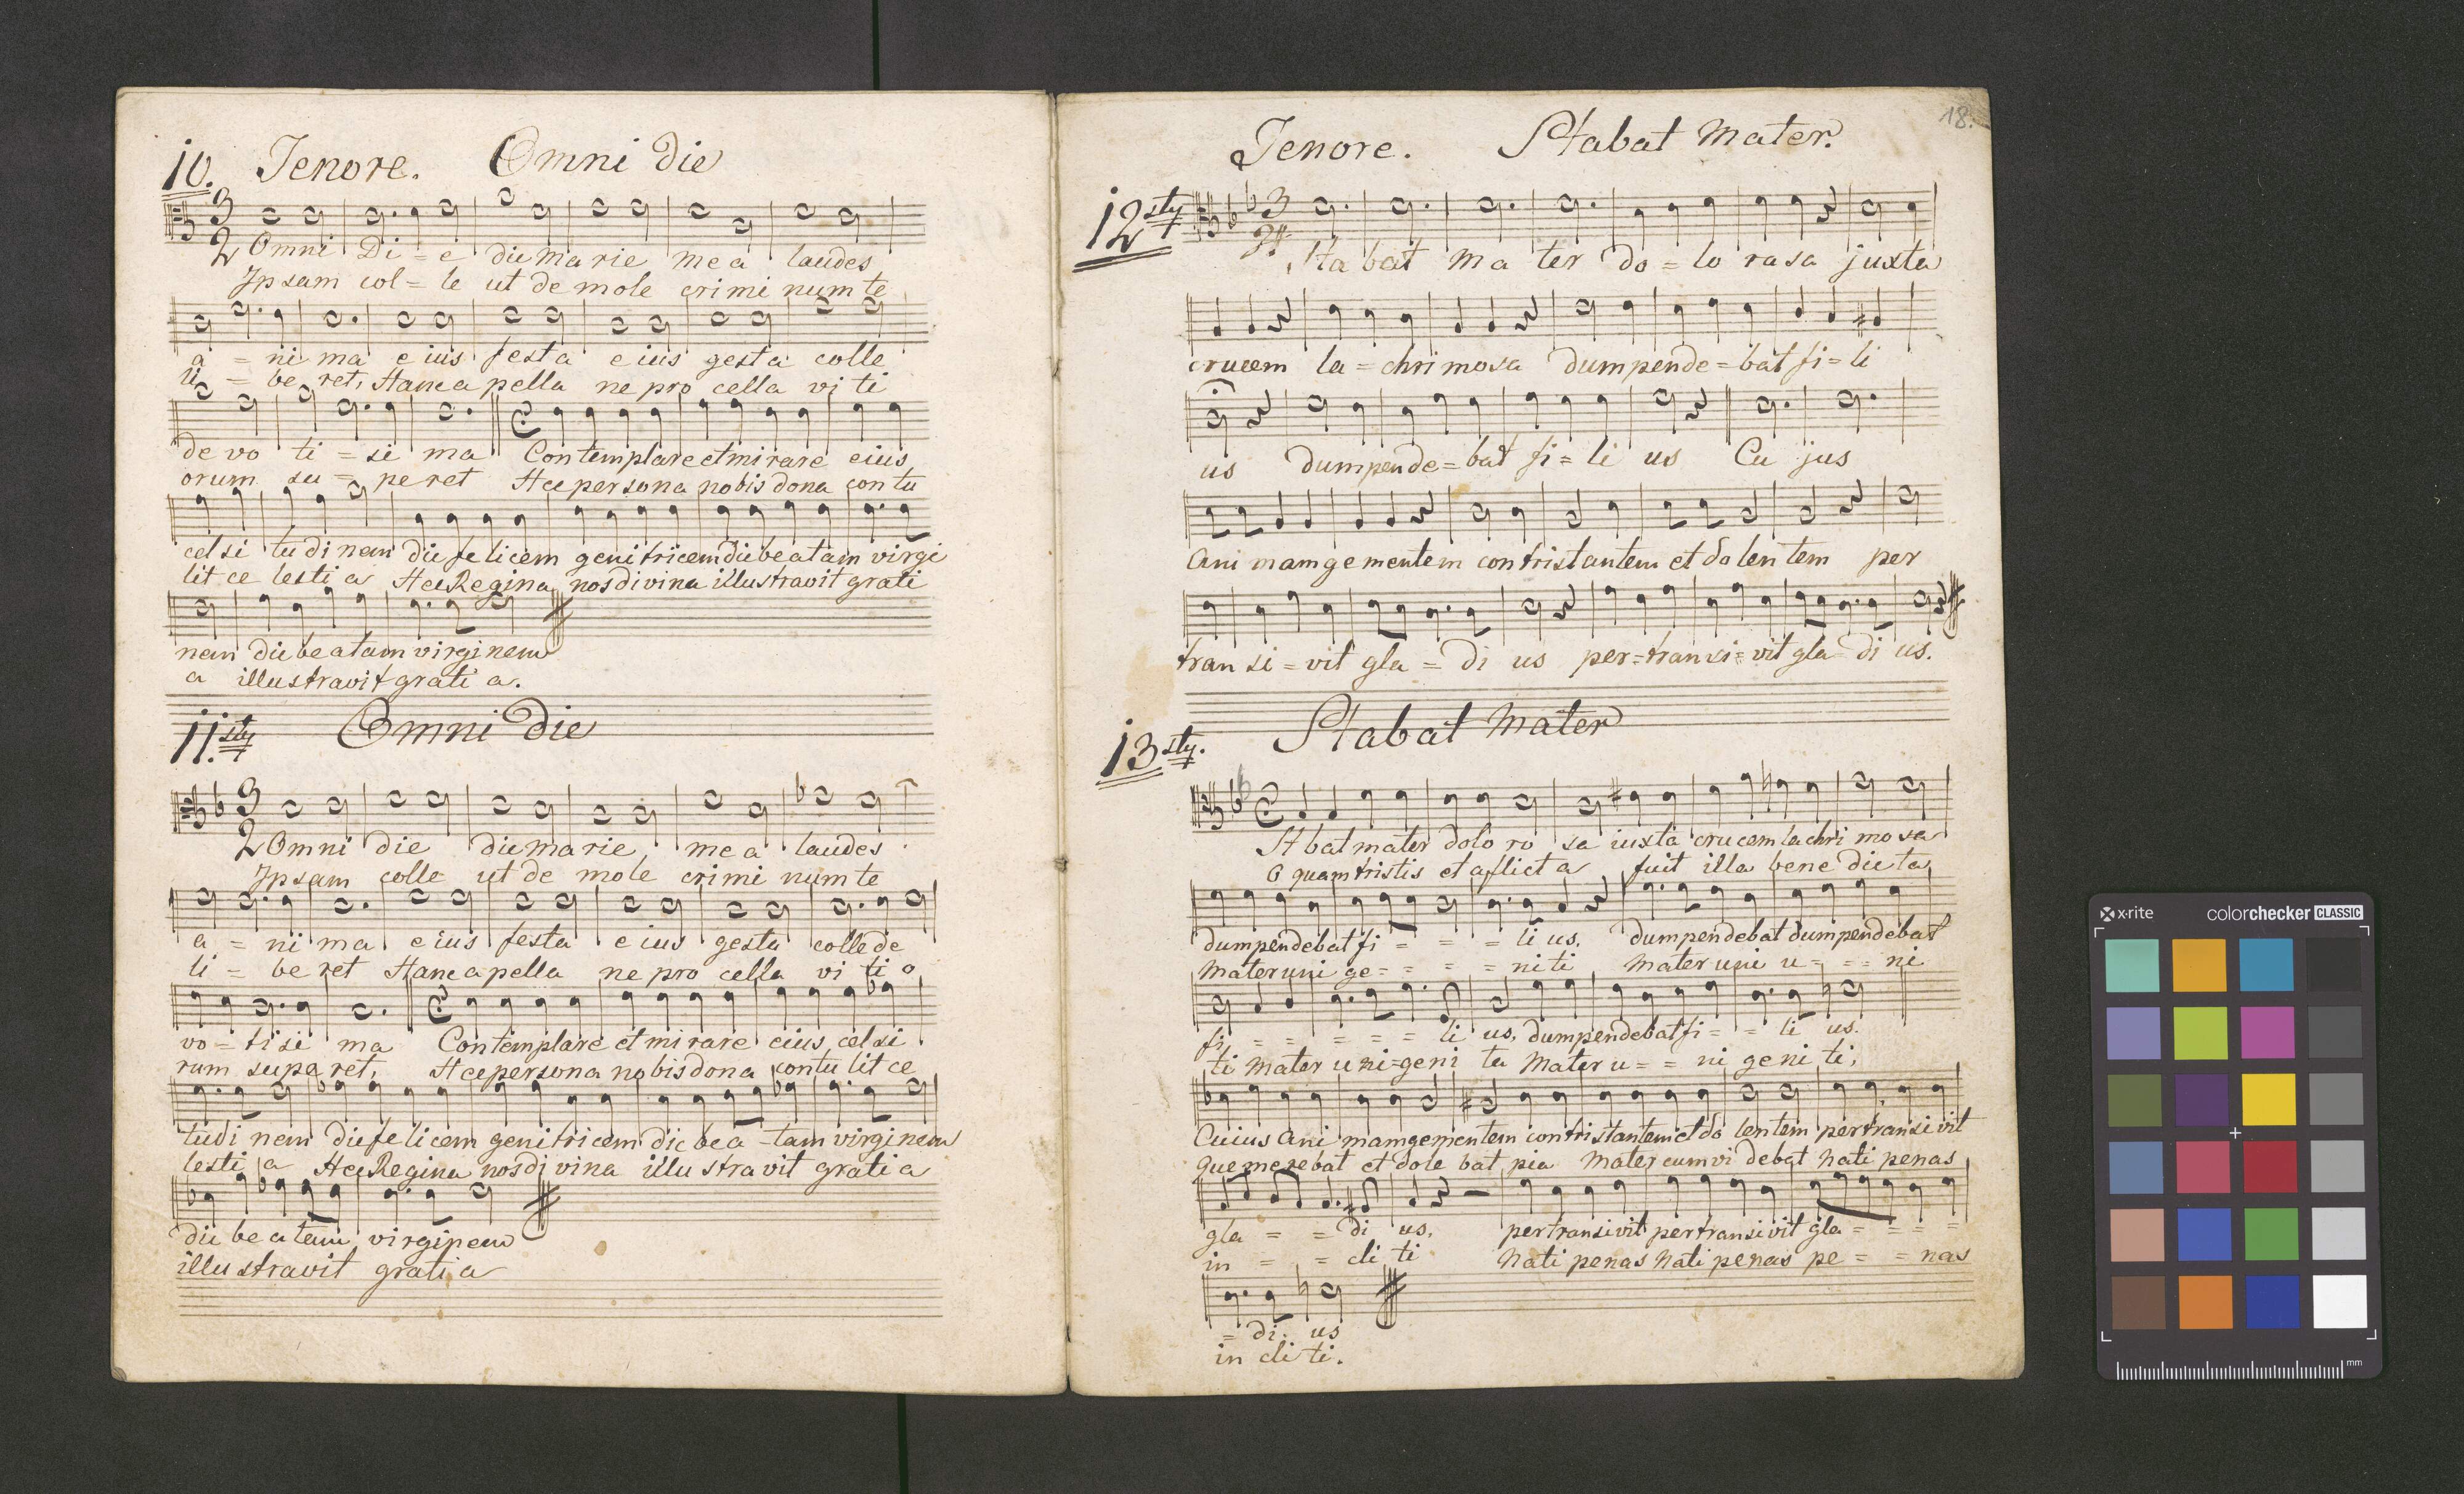 10. Tenore. Omni die
3
2
Omni Di = e die marie me a laudes
Ipsam col = le ut de mole crimi num te
a = ni ma e ius festa e ius gesta colle
li = be ret, Hanc apella ne pro cella vi ti
de vo ti = si ma Contemplare et mirare eius
orum su = pe ret Hec persona nobis dona con tu
cel si tu di nem dic felicem genitricem dic beatam virgi
lit ce lesti a Hec Regina nos divina illustravit grati
nem dic beatam virginem
a illustravit grati a.
11.sty Omni die
3
2
Omni die die marie me a laudes
Ipsam colle ut de mole crimi num te
a = ni ma e ius festa e ius gesta colle de
li = be ret Hanc apella ne pro cella vi ti o
vo = ti si ma Contemplare et mirare eius cel si
rum supe ret, Hec persona nobis dona contu lit ce
tudi nem dic felicem genitricem dic bea - tam virginem
lesti a Hec Regina nos divina illustravit grati a
dic be a tam virginem
illustravit grati a
18.
Tenore. Stabat Mater.
12sty
3
Sta bat Ma ter do = lo rasa juxta
crucem la = chrimosa dum pende = bat fi = li
us dum pende = bat fi = li us Cu jus
Ani mam gementem contristantem et do len tem per
tran si = vit gla = di us per = transi = vit gla = di us.
13sty. Stabat Mater
St bat mater dolo ro sa iuxta crucem lachri mosa
O quam tristis et aflicta fuit illa bene dicta
dum pendebat fi = = = li us. dum pendebat dum pendebat
Mater uni ge = = = = niti Mater uni u = = = ni
fi = = = = = li us, dum pendebat fi = = li us.
ti Mater uni = geni ta Mater u = = ni geni ti,
Cuius Ani mam gementem contristantem et do lentem pertransivit
que merebat et dole bat pia Mater cum vi debat Nati penas
gla = = di us, pertransivit pertransivit gla = = = =
in = = cli ti Nati penas Nati penas pe = = nas
= di us
in cli ti.
x·rite colorchecker CLASSIC
mm